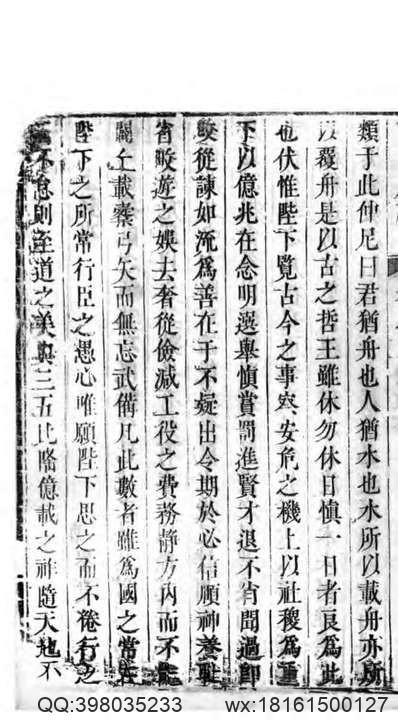 類于此仲尼曰君猶舟也人猶水也水所以載舟亦所
以覆舟是以古之哲王雖休勿休日慎一日者良為此
也伏惟陛下覽古今之事察安危之機上以社稷為重
下以億兆在念明選舉慎賞罰進賢才退不肖聞過即
改從諫如流為善在于不疑出令期於必信頤神養
省畋遊之娛去奢從儉減工役之費務静方内而不
闢土載櫜弓矢而無忘武備凡此數者雖為國之常
陛下之所常行臣之愚心唯願陛下思之而不倦行之
不怠則至道之美與三五比隆億載之祚隨天地不
QQ:398035233 wx:18161500127